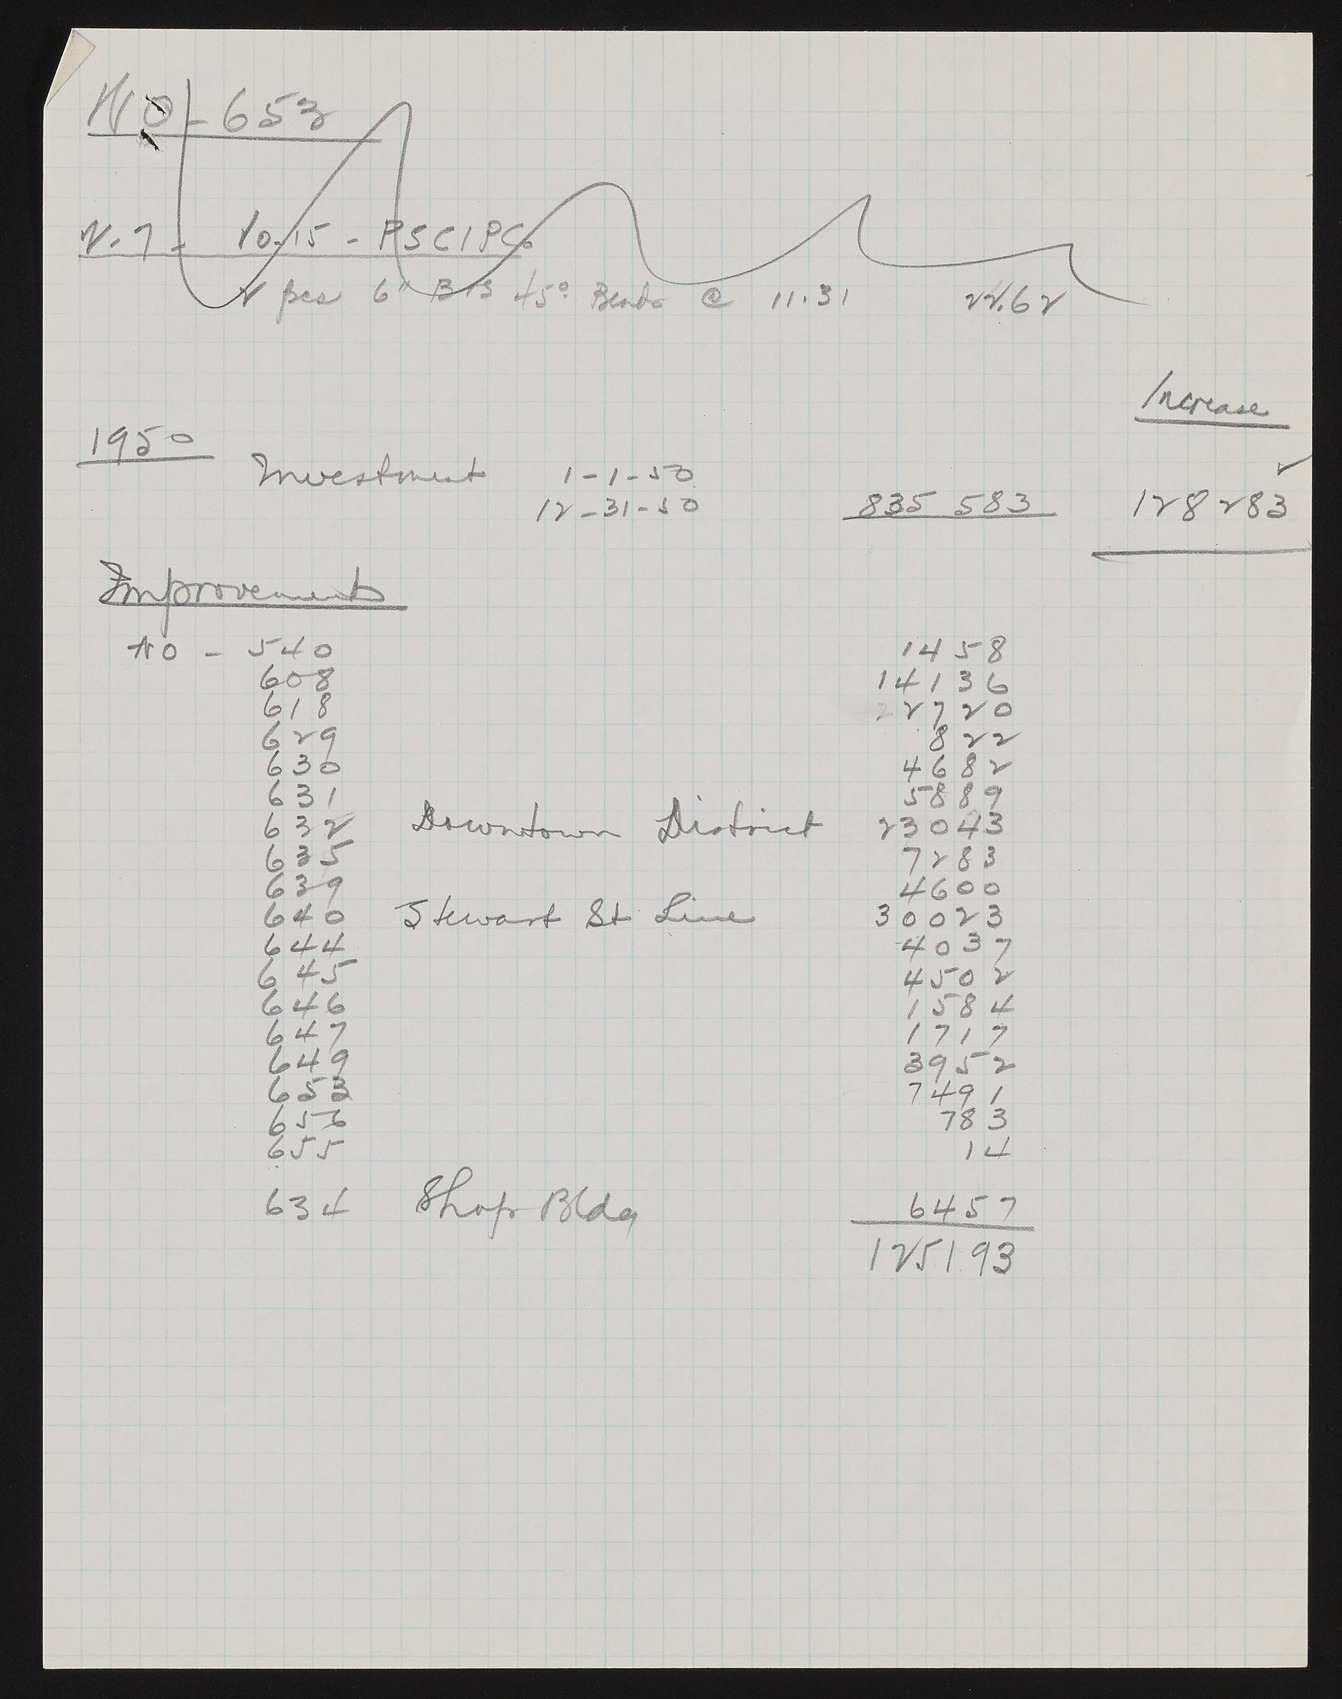 WO - 653
V-7 - Vo-15 - P S C I P Co
2 pcs 6" B&S 45° Bends @ 11.31 22.62
Increase
1950
Investment 1-1-50
12-31-50 835 583 128 283
Improvements
WO - 540 1458
608 14136
618 2720
629 822
630 4682
631 5889
632 Downtown District 23043
635 7283
639 4600
640 Stewart St Line 30023
644 4037
645 4502
646 1584
647 1717
649 3952
653 7491
656 783
655 14
634 Shop Bldg 6457
125193